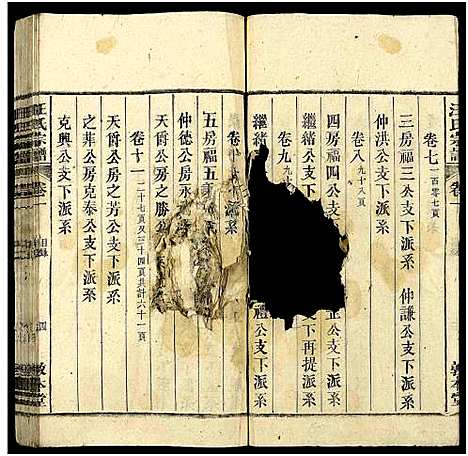 汪氏宗譜
卷一
敦本堂
卷七 一百零七頁
三房福三公支下派系 仲謙公支下派系
仲洪公支下派系
卷八 九十八頁
四房福四公支 公支下派系
繼緒公支 公支下再提派系
卷九 九十
繼緒 禮公支下派系
卷十
五房福五
仲德公房永
天爵公房之勝
卷十一 二十七頁又三十四頁共計六十一頁
天爵公房之芳公支下派系
之菲公房克泰公支下派系
克興公支下派系
汪氏宗譜
卷一
目錄
四
敦本堂